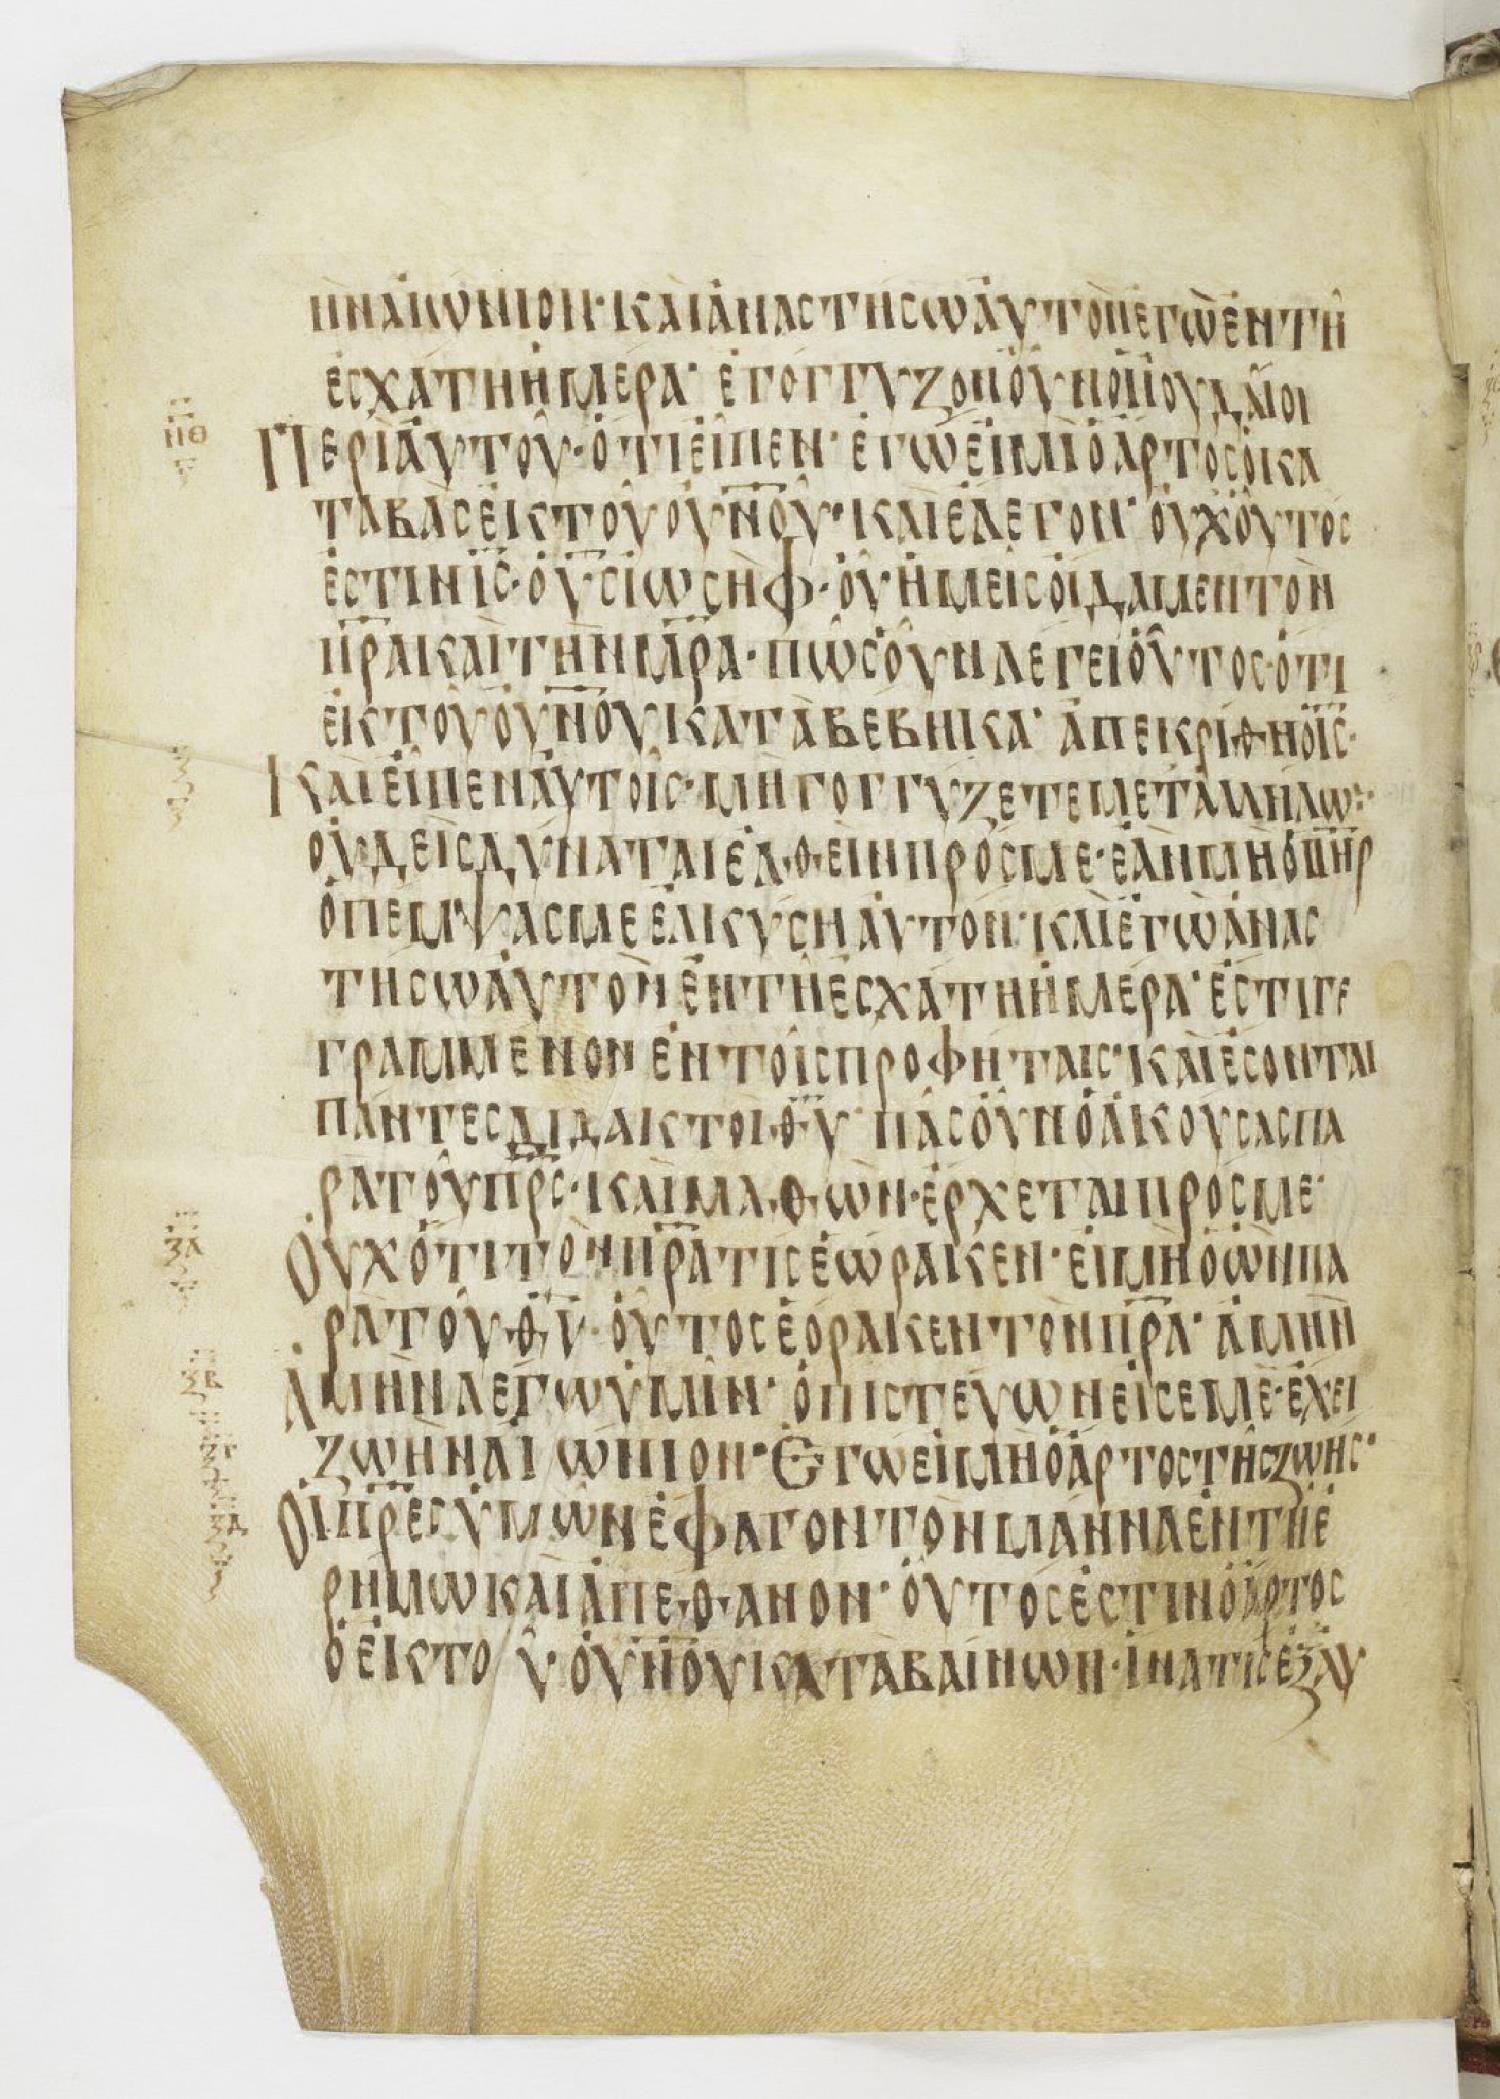 ΗΝ ΑΙΩΝΙΟΝ· ΚΑΙ ΑΝΑΣΤΗΣΩ ΑΥΤΟΝ ΕΓΩ ΕΝ ΤΗ
ΕΣΧΑΤΗ ΗΜΕΡΑ· ΕΓΟΓΓΥΖΟΝ ΟΥΝ ΟΙ ΙΟΥΔΑΙΟΙ
ΠΘ
ΠΕΡΙ ΑΥΤΟΥ· ΟΤΙ ΕΙΠΕΝ· ΕΓΩ ΕΙΜΙ Ο ΑΡΤΟΣ Ο ΚΑ
ΤΑΒΑΣ ΕΚ ΤΟΥ ΟΥΝΟΥ· ΚΑΙ ΕΛΕΓΟΝ· ΟΥΧ ΟΥΤΟΣ
ΕΣΤΙΝ ΙΣ· Ο ΥΣ ΙΩΣΗΦ· ΟΥ ΗΜΕΙΣ ΟΙΔΑΜΕΝ ΤΟΝ
ΠΡΑ ΚΑΙ ΤΗΝ ΜΡΑ· ΠΩΣ ΟΥΝ ΛΕΓΕΙ ΟΥΤΟΣ· ΟΤΙ
ΕΚ ΤΟΥ ΟΥΝΟΥ ΚΑΤΑΒΕΒΗΚΑ· ΑΠΕΚΡΙΘΗ Ο ΙΣ·
ΚΑΙ ΕΙΠΕΝ ΑΥΤΟΙΣ· ΜΗ ΓΟΓΓΥΖΕΤΕ ΜΕΤ ΑΛΛΗΛΩ:·
ΟΥΔΕΙΣ ΔΥΝΑΤΑΙ ΕΛΘΕΙΝ ΠΡΟΣ ΜΕ· ΕΑΝ ΜΗ Ο ΠΗΡ
Ο ΠΕΜΨΑΣ ΜΕ ΕΛΚΥΣΗ ΑΥΤΟΝ· ΚΑΙ ΕΓΩ ΑΝΑΣ
ΤΗΣΩ ΑΥΤΟΝ ΕΝ ΤΗ ΕΣΧΑΤΗ ΗΜΕΡΑ· ΕΣΤΙ ΓΕ
ΓΡΑΜΜΕΝΟΝ ΕΝ ΤΟΙΣ ΠΡΟΦΗΤΑΙΣ· ΚΑΙ ΕΣΟΝΤΑΙ
ΠΑΝΤΕΣ ΔΙΔΑΚΤΟΙ ΘΥ· ΠΑΣ ΟΥΝ Ο ΑΚΟΥΣΑΣ ΠΑ
ΡΑ ΤΟΥ ΠΡΣ· ΚΑΙ ΜΑΘΩΝ· ΕΡΧΕΤΑΙ ΠΡΟΣ ΜΕ·
ΟΥΧ ΟΤΙ ΤΟΝ ΠΡΑ ΤΙΣ ΕΩΡΑΚΕΝ· ΕΙ ΜΗ Ο ΩΝ ΠΑ
ΡΑ ΤΟΥ ΘΥ· ΟΥΤΟΣ ΕΟΡΑΚΕΝ ΤΟΝ ΠΡΑ· ΑΜΗΝ
ΑΜΗΝ ΛΕΓΩ ΥΜΙΝ· Ο ΠΙΣΤΕΥΩΝ ΕΙΣ ΕΜΕ· ΕΧΕΙ
ΖΩΗΝ ΑΙΩΝΙΟΝ· ΕΓΩ ΕΙΜΗ Ο ΑΡΤΟΣ ΤΗΣ ΖΩΗΣ·
ΟΙ ΠΡΕΣ ΥΜΩΝ ΕΦΑΓΟΝ ΤΟΝ ΜΑΝΝΑ ΕΝ ΤΗ Ε
ΡΗΜΩ ΚΑΙ ΑΠΕΘΑΝΟΝ· ΟΥΤΟΣ ΕΣΤΙΝ Ο ΑΡΤΟΣ
Ο ΕΚ ΤΟΥ ΟΥΝΟΥ ΚΑΤΑΒΑΙΝΩΝ· ΙΝΑ ΤΙΣ ΕΞ ΑΥ